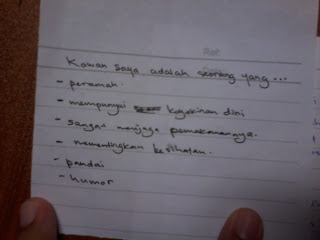 Kawan saya adalah seorang yang...
- peramah.
- mempunyai keyakinan diri
- sangat menjaga pemakanannya.
- mementingkan kesihatan.
- pandai
- humor